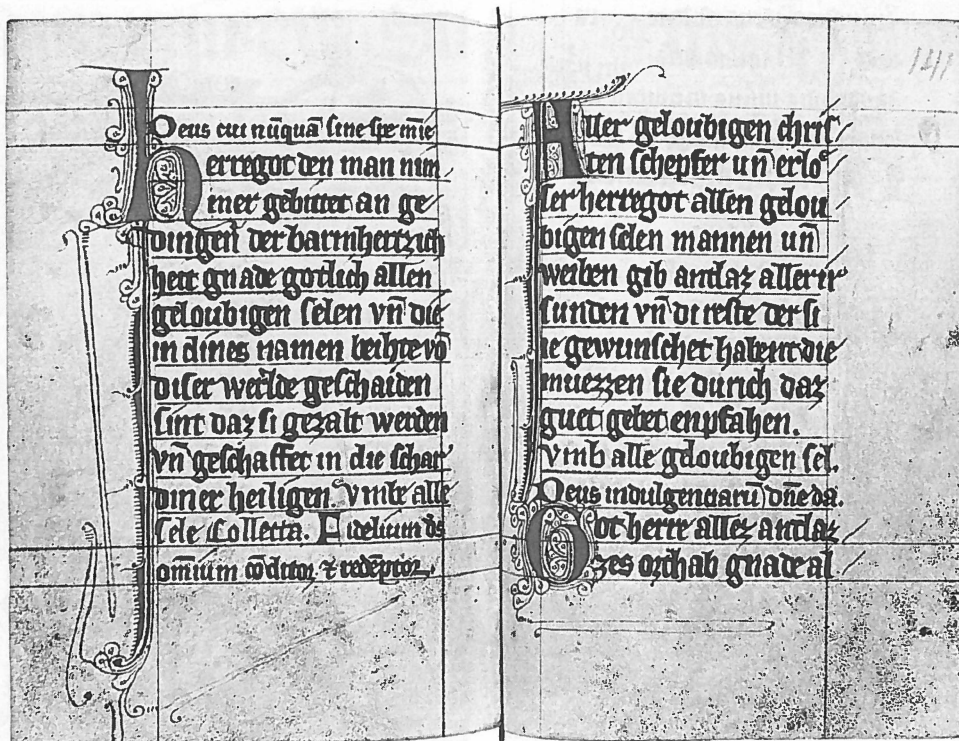 Deus cui nūquā sine spe mīe
Herregot den man nim
mer gebittet an ge
dingen der barmhertzich
heit gnade gotlich allen
geloubigen selen vn̄ die
in dines namen beihte vō
diser werlde geschaiden
sint daz si gezalt werden
vn̄ geschaffet in die schar
diner heiligen. Vmbe alle
sele Collecta. Fidelium ds̄
omīum ꝯditor ⁊ redēptor
1411
Aller geloubigen chris
ten schepfer un̄ erlo
ser herregot allen gelou
bigen selen mannen un̄
weiben gib antlaz aller ir
sunden vn̄ di reste der si
ie gewunschet habent die
muezzen sie durich daz
guet gebet enpfahen.
Vmb alle geloubigen sel.
Deus indulgenciarū dn̄e da.
Got herre allez antlaz
zes orthab gnade al